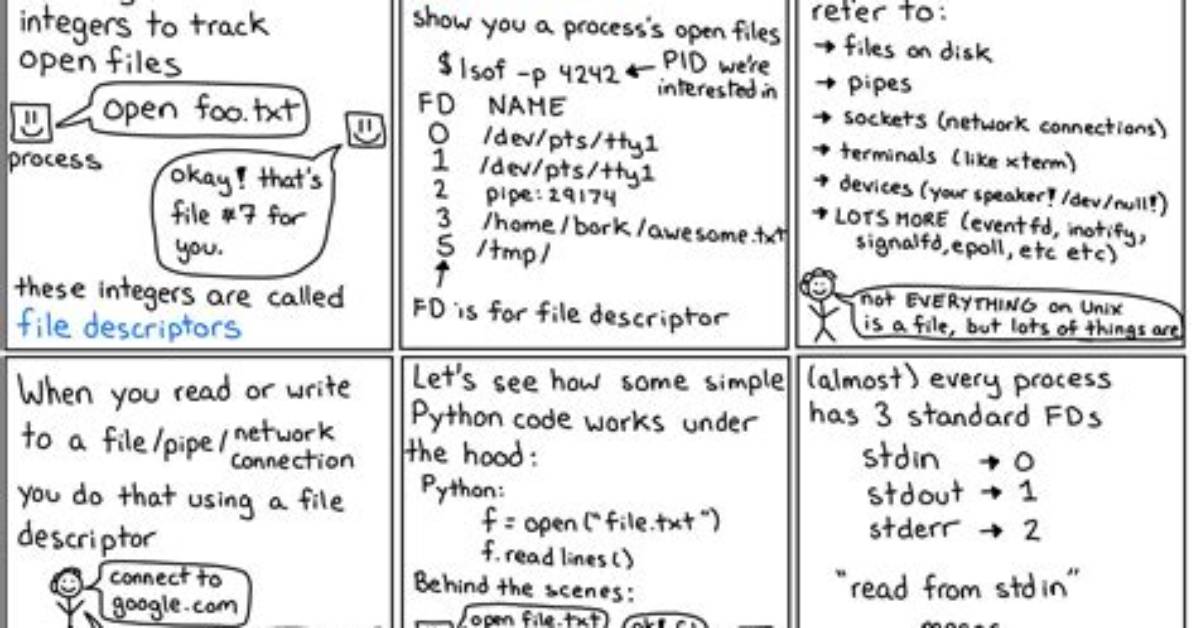 integers to track
open files
open foo.txt
process
okay! that's
file #7 for
you.
these integers are called
file descriptors
show you a process's open files
$ lsof -p 4242 ← PID we're
interested in
FD NAME
0 /dev/pts/tty1
1 /dev/pts/tty1
2 pipe:29174
3 /home/bork/awesome.txt
5 /tmp/
↑
FD is for file descriptor
refer to:
→ files on disk
→ pipes
→ sockets (network connections)
→ terminals (like xterm)
→ devices (your speaker! /dev/null!)
→ LOTS MORE (eventfd, inotify,
signalfd, epoll, etc etc)
not EVERYTHING on Unix
is a file, but lots of things are
When you read or write
to a file/pipe/network
connection
you do that using a file
descriptor
connect to
google.com
Let's see how some simple
Python code works under
the hood:
Python:
f = open("file.txt")
f.readlines()
Behind the scenes:
open file.txt
(almost) every process
has 3 standard FDs
stdin → 0
stdout → 1
stderr → 2
"read from stdin"
means